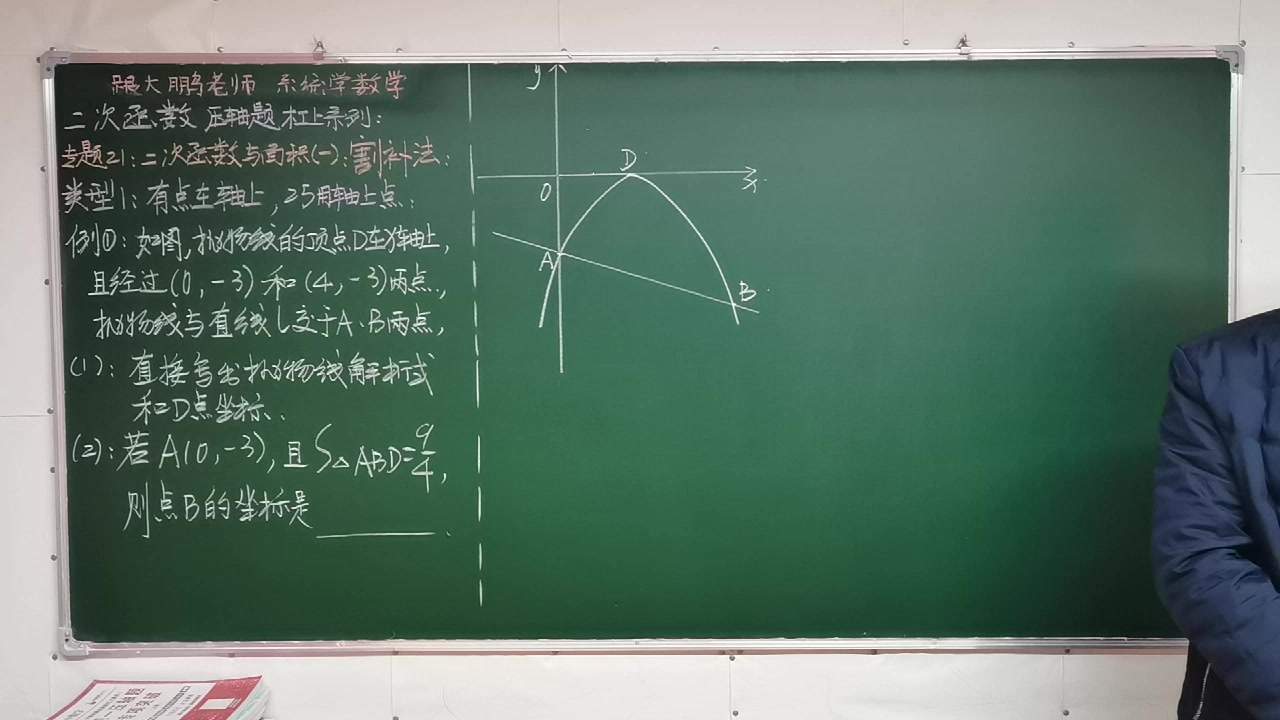 跟大鹏老师 系统学数学
二次函数压轴题杠上系列:
专题21:二次函数与面积(一):割补法:
类型1:有点在轴上,巧用轴上点:
例①:如图,抛物线的顶点D在x轴上,
且经过(0,-3)和(4,-3)两点,
抛物线与直线l交于A、B两点,
(1):直接写出抛物线解析式
和D点坐标.
(2):若A(0,-3),且S△ABD=9/4,
则点B的坐标是______.
y
D
O
x
A
B